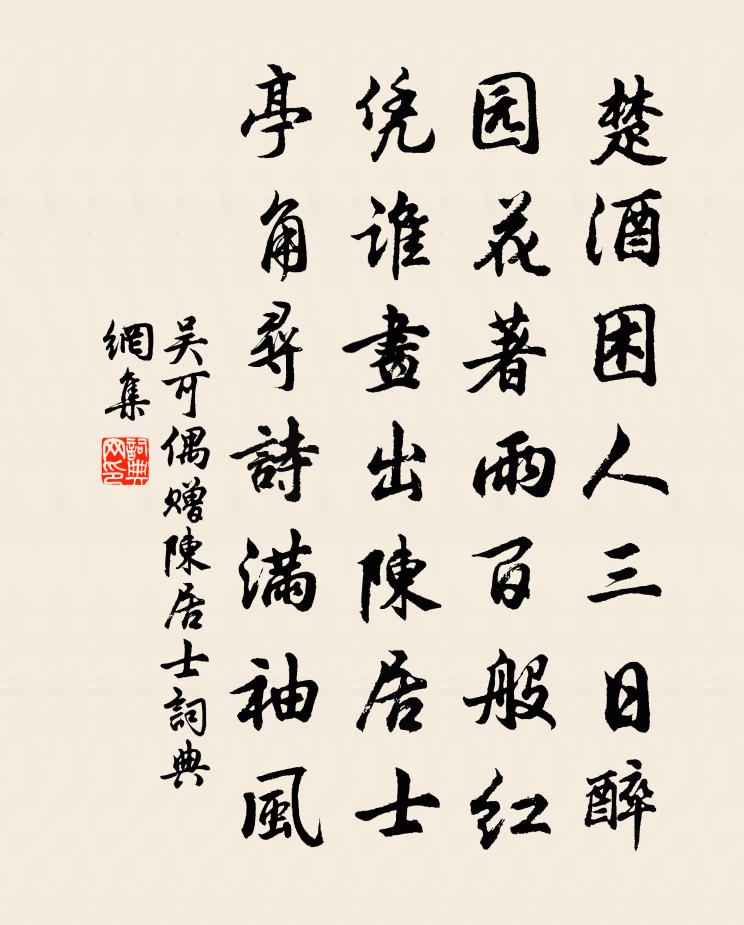 楚酒困人三日醉
园花著雨百般红
凭谁畫出陳居士
亭角尋詩满袖風
吴可偶赠陳居士詞典
網集
詞典網印